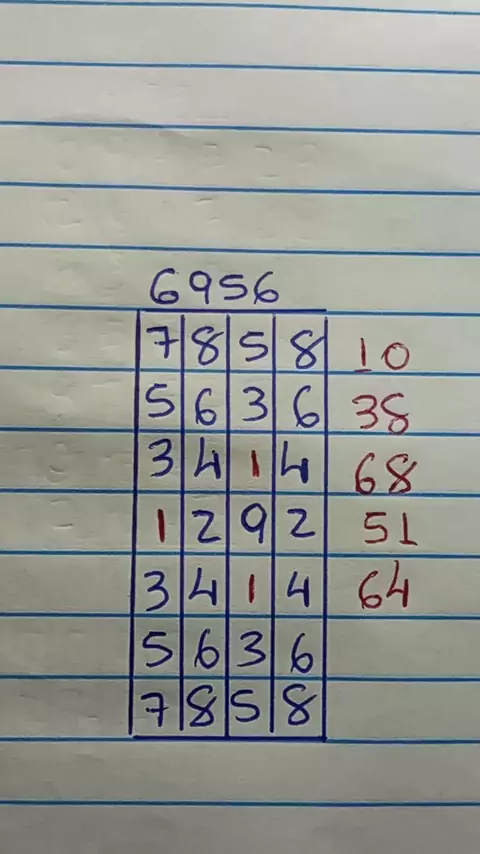 6956
7 8 5 8 10
5 6 3 6 38
3 4 1 4 68
1 2 9 2 51
3 4 1 4 64
5 6 3 6
7 8 5 8